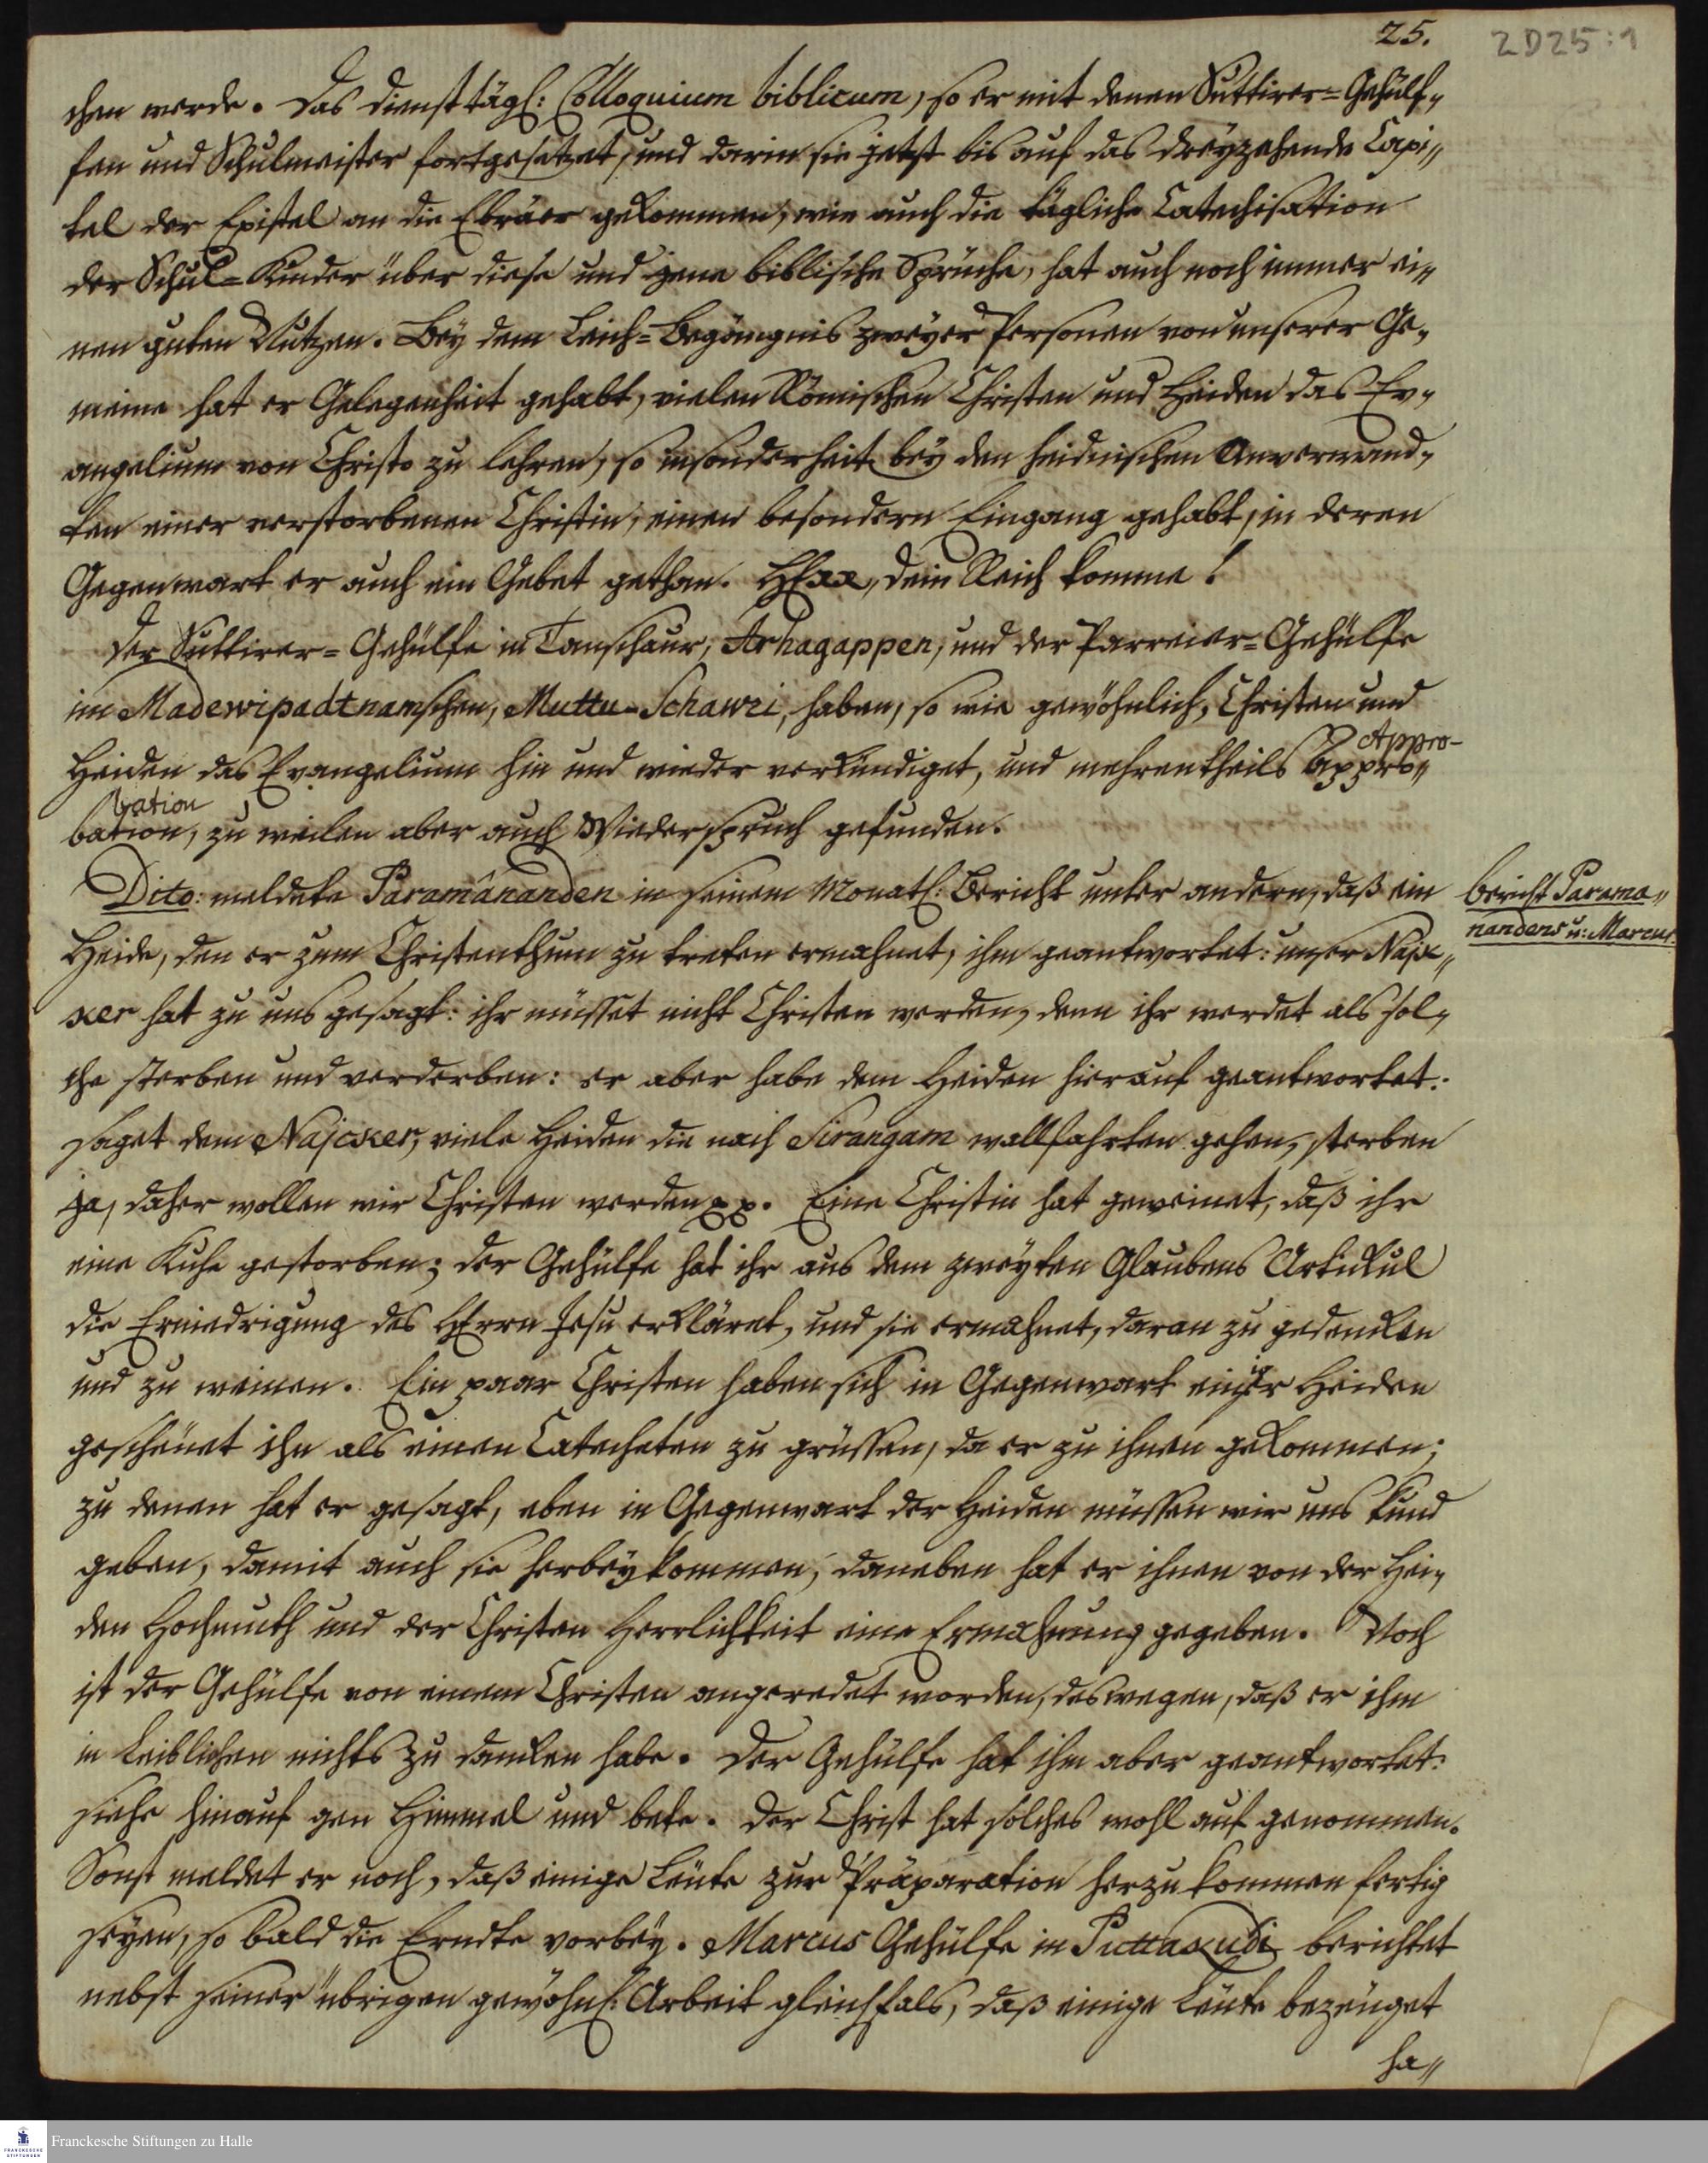 25.
2D25:1
chen werde. Das diensttägl: Colloquium biblicum, so er mit denen Suttirer=Gehülf„
fen und Schulmeister fortgesetzet, und darin sie jetzt bis auf das dreyzehende Capi„
tel der Epistel an die Ebräer gekommen, wie auch die tägliche Catechisation
der Schul=Kinder über diese und jene biblische Sprüche, hat auch noch immer ei„
nen guten Nutzen. Bey dem Leich=Begängnis zweyer Personen von unserer Ge„
meine hat er Gelegenheit gehabt, vielen Römischen Christen und Heiden das Ev„
angelium von Christo zu lehren, so insonderheit bey den heidnischen Anverwand„
ten einer verstorbenen Christin, einen besondern Eingang gehabt, in deren
Gegenwart er auch ein Gebet gethan. HErr, dein Reich komme!
Der Suttirer=Gehülfe in Tanschaur, Arhagappen, und der Parreier=Gehülffe
im Madewipadtnamschen, Muttu-Schawri, haben, so wie gewöhnlich, Christen und
Heiden das Evangelium hin und wieder verkündiget, und mehrentheils Appro„
Appro-
bation
bation, zu weilen aber auch Wiederspruch gefunden.
Dito: meldete Paramânanden in seinem Monatl: Bericht unter andern, daß ein
Bericht Parama„
nandens u: Marcus.
Heide, den er zum Christenthum zu treten ermahnet, ihm geantwortet: unser Najc„
ker hat zu uns gesagt: ihr müsset nicht Christen werden, denn ihr werdet als sol„
che sterben und verderben: er aber habe dem Heiden hierauf geantwortet:
saget dem Najcker, viele Heiden die nach Sirangam wallfahrten gehen, sterben
ja, daher wollen wir Christen werden pp. Eine Christin hat geweinet, daß ihr
eine Kuhe gestorben; der Gehülfe hat ihr aus dem zweyten Glaubens Artikul
die Erniedrigung des HErrn Jesu erkläret, und sie ermahnet, daran zu gedencken
und zu weinen. Ein paar Christen haben sich in Gegenwart einiger Heiden
gescheuet ihn als einen Catecheten zu grüssen, da er zu ihnen gekommen;
zu denen hat er gesagt, eben in Gegenwart der Heiden müssen wir uns kund
geben, damit auch sie herbeykommen, daneben hat er ihnen von der Hei„
den Hochmuth und der Christen Herrlichkeit eine Ermahnung gegeben. Noch
ist der Gehülfe von einem Christen angeredet worden, deswegen, daß er ihm
in Leiblichen nichts zu dancken habe. Der Gehülfe hat ihm aber geantwortet:
siehe hinauf gen Himmel und bete. Der Christ hat solches wohl auf genommen.
Sonst meldet er noch, daß einige Leute zur Präparation herzu kommen fertig
seyen, so bald die Erndte vorbey. Marcus Gehülfe in Puttakudi berichtet
nebst seiner übrigen gewöhnl: Arbeit gleichfals, daß einige Leute bezeuget
ha„
Franckesche Stiftungen zu Halle